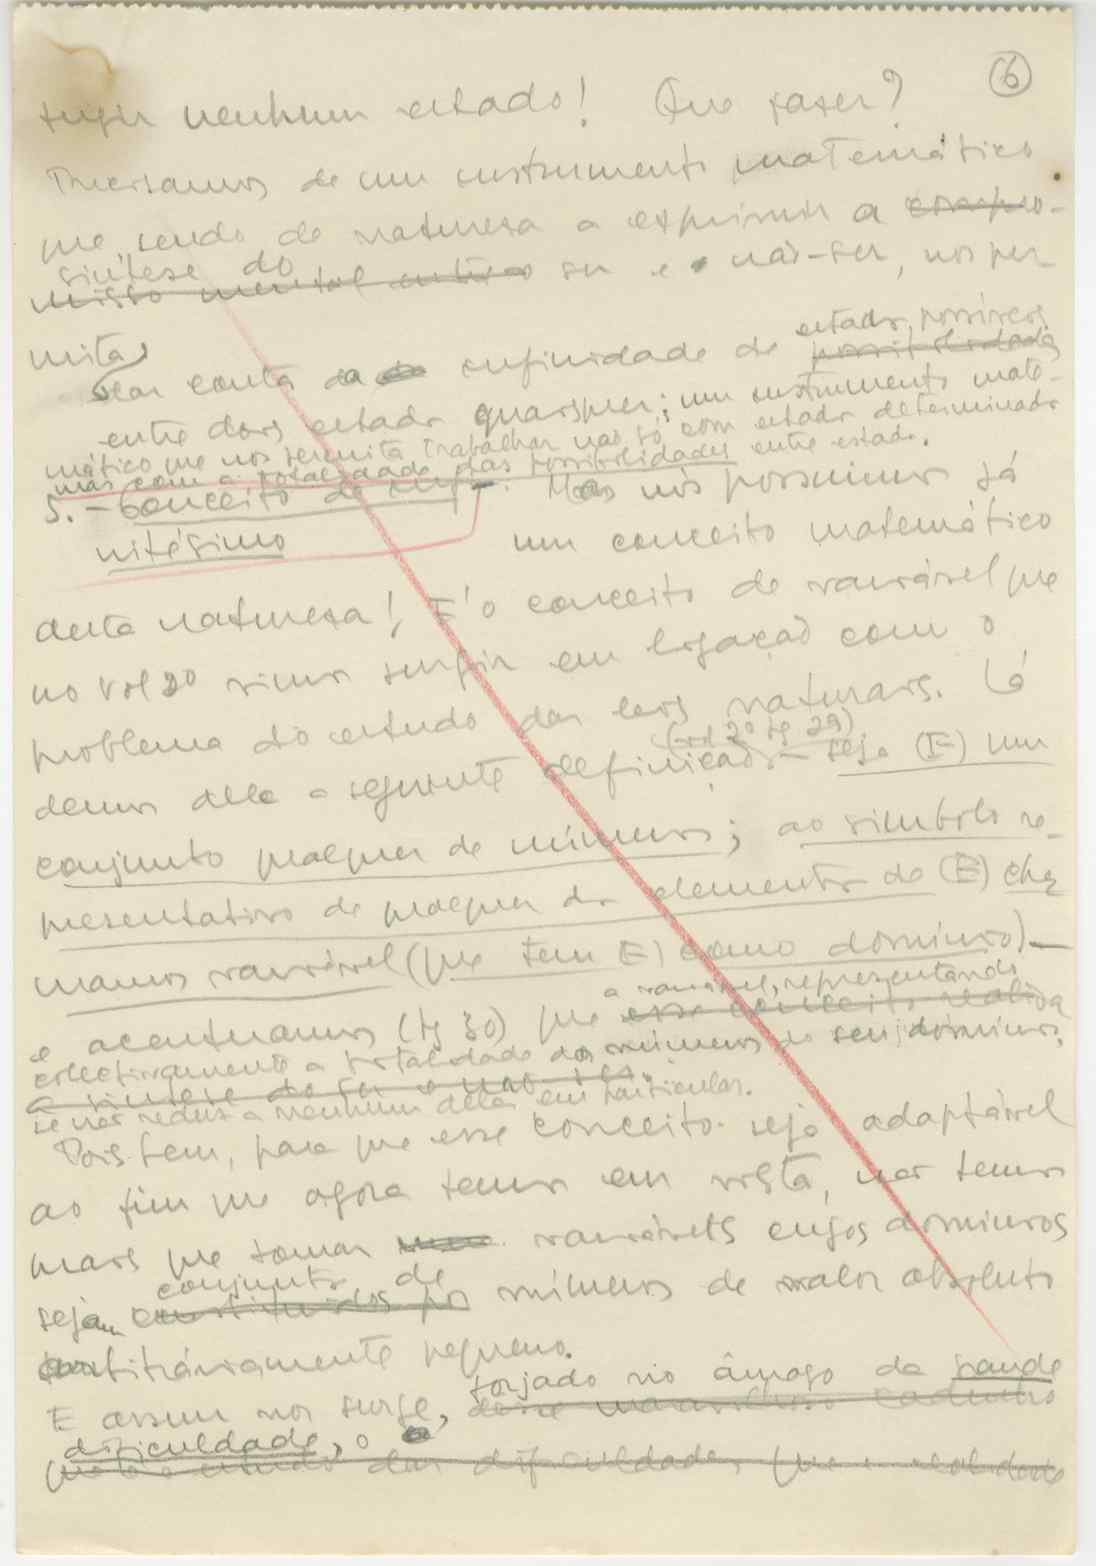 6
fugir nenhum estado! Que fazer?
Precisamos de um instrumento matemático
que, sendo de natureza a exprimir a compro-
síntese do
misso mental entre o ser e o não-ser, nos per-
mita
estados possíveis
dar conta da infinidade de possibilidades
entre dois estados quaisquer; um instrumento mate-
mático que nos permita trabalhar não só com estados determinados
mas com a totalidade das possibilidades entre estados.
5. – Conceito de infi- Mas nós possuimos já
nitésimo um conceito matemático
desta natureza! É o conceito de variável que
no vol 2º vimos surgir em ligação com o
problema do estudo das leis naturais. Lá
(vol 2º pg 29)
demos dele a seguinte definição – seja (E) um
conjunto qualquer de números; ao símbolo re-
presentativo de qualquer dos elementos de (E) cha
mamos variável (que tem E) como domínio) –
a variável, representando
e acentuamos (pg 30) que esse conceito realiza
colectivamente a totalidade dos números do seu domínio,
a síntese do ser e não-ser.
se não reduz a nenhum deles em particular.
Pois bem, para que esse conceito seja adaptável
ao fim que agora temos em vista, não temos
mais que tomar variáveis cujos domínios
conjuntos de
sejam constituídos por números de valor absoluto
arbitráriamente pequeno.
forjado no âmago da grande
E assim nos surge, desse maravilhoso cadinho
dificuldade, o
que é o estudo das dificuldades que a realidade